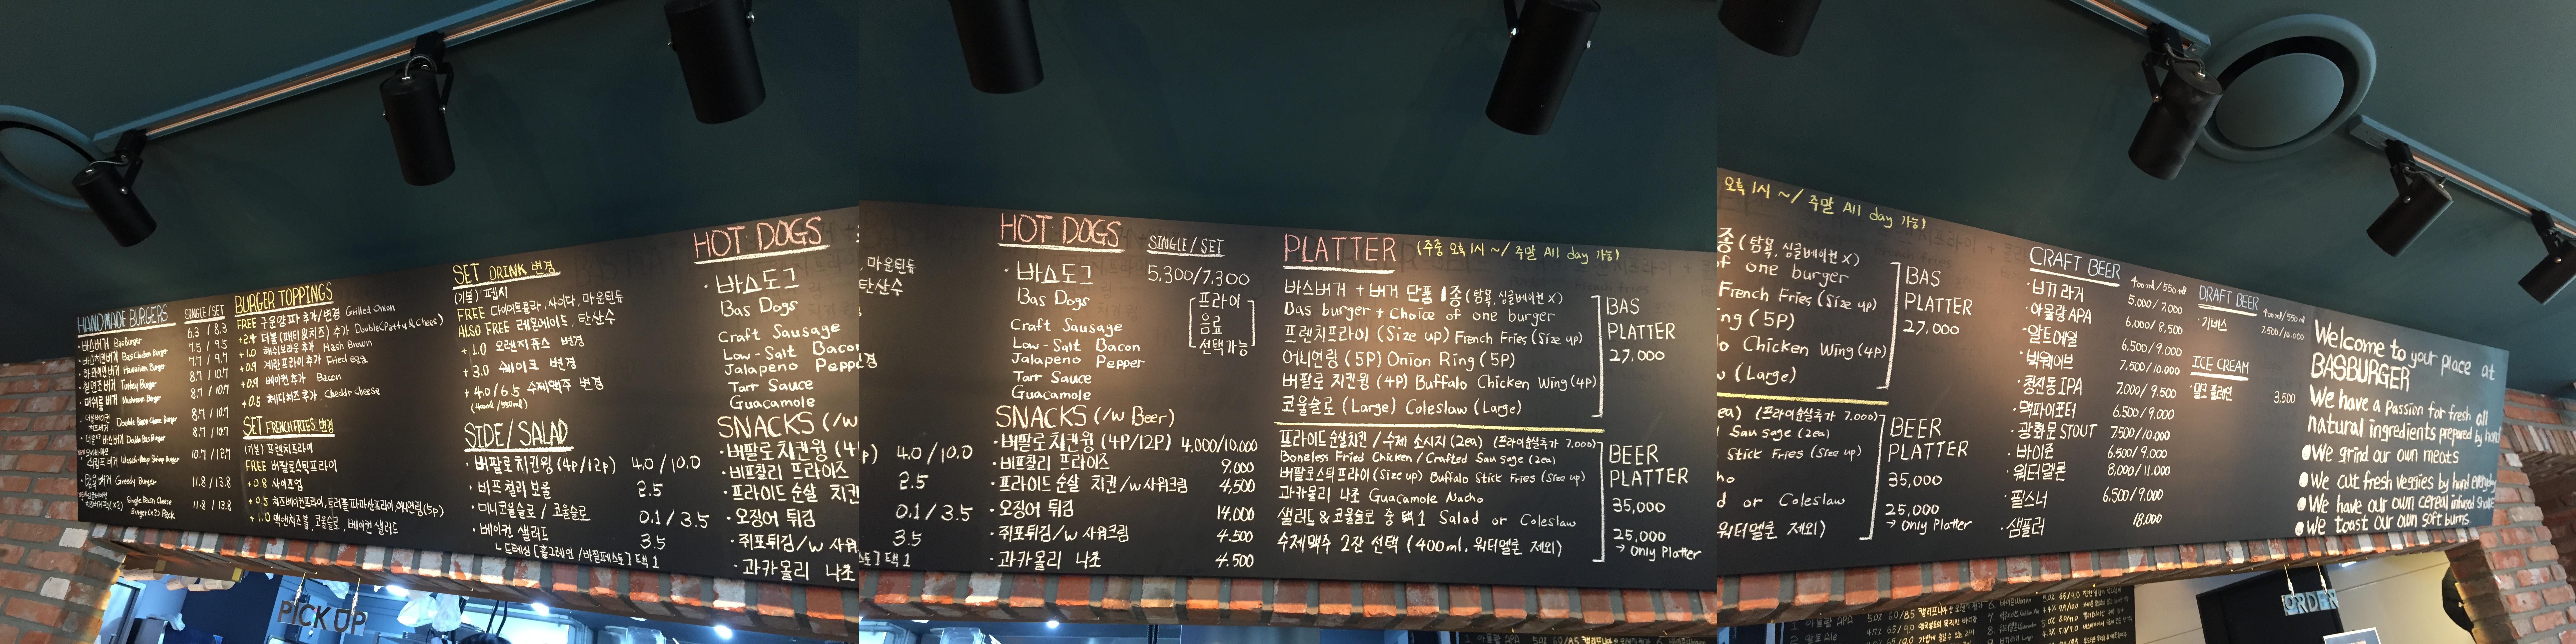 HANDMADE BURGERS SINGLE/SET
·바스버거 Bas Burger 6.3 / 8.3
·바스치킨버거 Bas Chicken Burger 7.5 / 9.5
·하와이안버거 Hawaiian Burger 7.7 / 9.7
·칠면조버거 Turkey Burger 8.7 / 10.7
·머쉬룸버거 Mushroom Burger 8.7 / 10.7
Double Bacon Cheese Burger 8.7 / 10.7
·더블바스버거 Double Bas Burger 8.7 / 10.7
쉬림프버거 Shrimp Burger 10.7 / 12.7
·탐욕버거 Greedy Burger 11.8 / 13.8
(x2) Single Bacon Cheese Burger(x2) Pack 11.8 / 13.8
BURGER TOPPINGS
FREE 구운양파 추가/변경 Grilled Onion
+2.4 더블(패티&치즈) 추가 Double(Patty & Cheese)
+1.0 해쉬브라운 추가 Hash Brown
+0.9 계란프라이 추가 Fried Egg
+0.9 베이컨 추가 Bacon
+0.5 체다치즈 추가 Cheddr cheese
SET FRENCH FRIES 변경
(기본) 프렌치프라이
FREE 버팔로스틱프라이
+0.8 사이즈업
+0.5 치즈베이컨프라이, 트러플파마산프라이, 어니언링(5p)
+1.0 맥앤치즈볼, 코울슬로, 베이컨 샐러드
SET DRINK 변경
(기본) 펩시
FREE 다이어트콜라, 사이다, 마운틴듀
ALSO FREE 레몬에이드, 탄산수
+1.0 오렌지쥬스 변경
+3.0 쉐이크 변경
+4.0/6.5 수제맥주 변경
(400ml/550ml)
SIDE/SALAD
·버팔로치킨윙 (4p/12p) 4.0/10.0
·비프 칠리 보울 2.5
·미니코울슬로 / 코울슬로 0.1/3.5
·베이컨 샐러드 3.5
ㄴ드레싱 [홀그레인/바질페스토] 택 1
HOT DOGS
·바스도그
Bas Dogs
Craft Sausage
Low-Salt Bacon
Jalapeno Peppe
Tarr Sauce
Guacamole
SNACKS (/w
·버팔로치킨윙 (4
·비프칠리 프라이즈
·프라이드 순살 치킨
·오징어 튀김
·쥐포튀김/w 사워
·과카몰리 나초
, 마운틴듀
탄산수
경
p) 4.0/10.0
2.5
0.1/3.5
3.5
스토] 택 1
HOT DOGS SINGLE/SET
·바스도그 5,300/7,300
Bas Dogs
[프라이
음료
선택가능]
Craft Sausage
Low-Salt Bacon
Jalapeno Pepper
Tarr Sauce
Guacamole
SNACKS (/w Beer)
·버팔로치킨윙 (4P/12P) 4,000/10.000
·비프칠리 프라이즈 9.000
·프라이드 순살 치킨/w사워크림 4,500
·오징어 튀김 14.000
·쥐포튀김/w 사워크림 4.500
·과카몰리 나초 4.500
PLATTER (주중 오후 1시 ~/ 주말 All day 가능)
바스버거 + 버거 단품 1종 (탐욕, 싱글베이컨 X)
Bas burger + Choice of one burger
프렌치프라이 (Size up) French Fries (Size up)
어니언링 (5P) Onion Ring (5P)
버팔로 치킨윙 (4P) Buffalo Chicken Wing (4P)
코울슬로 (Large) Coleslaw (Large)
BAS
PLATTER
27,000
프라이드순살치킨 / 수제 소시지 (2ea) (프라이순살추가 7.000)
Boneless Fried Chicken / Crafted Sausage (2ea)
버팔로스틱프라이 (Size up) Buffalo Stick Fries (Size up)
과카몰리 나초 Guacamole Nacho
샐러드&코울슬로 중 택1 Salad or Coleslaw
수제맥주 2잔 선택 (400ml, 워터멜론 제외)
BEER
PLATTER
35,000
25,000
→ Only Platter
오후 1시 ~/ 주말 All day 가능)
종 (탐욕, 싱글베이컨 X)
of one burger
French Fries (Size up)
ng (5P)
o Chicken Wing (4P)
w (Large)
BAS
PLATTER
27,000
ea) (프라이순살추가 7.000)
Sausage (2ea)
Stick Fries (Size up)
ho
d or Coleslaw
워터멜론 제외)
BEER
PLATTER
35,000
25,000
→ Only Platter
CRAFT BEER 400ml/550ml
·비기 라거 5,000/7,000
·아몰랑 APA 6,000/8,500
·알토에일 6,500/9.000
·빅웨이브 7,500/10.000
·청진동 IPA 7,000/9,500
·맥파이포터 6.500/9.000
·광화문 STOUT 7500/10.000
·바이준 6.500/9.000
·워터멜론 8,000/11.000
·필스너 6,500/9.000
·샘플러 18,000
DRAFT BEER 400ml/550ml
·기버스 7,500/10,000
ICE CREAM
·밀크 플레인 3.500
Welcome to your place at
BASBURGER
We have a Passion for fresh all
natural ingredients prepared by hand
●We grind our own meats
●We cut fresh veggies by hand everyday
●We have our own cereal infused Shake
●We toast our own soft buns
PICK UP
ORDER